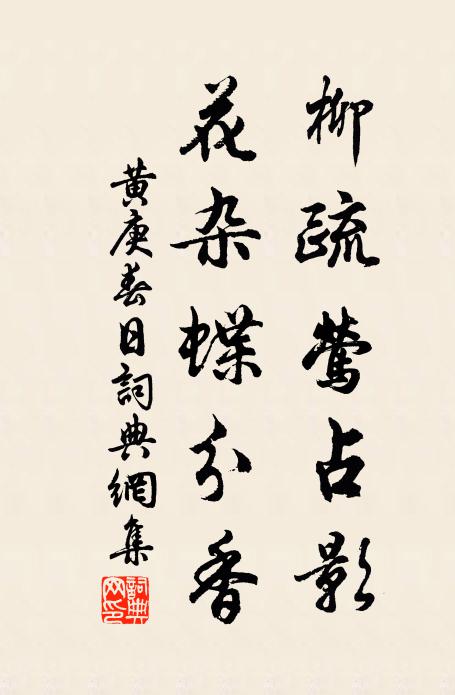 柳疏鶯占影
花杂蝶分香
黄庚春日詞典網集
詞典网印